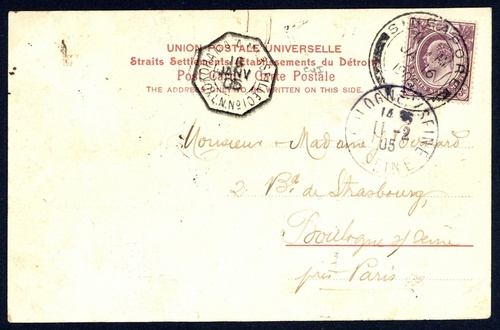 UNION POSTALE UNIVERSELLE
Straits Settlements Etablissements du Détroit
Post Card Carte Postale
THE ADDRESS ONLY TO BE WRITTEN ON THIS SIDE.
16
JANV
05
SINGAPORE
BOULOGNE-S-SEINE
14
11-2
05
SEINE
Monsieur Madame
2 Bd de Strasbourg,
Boulogne s/Seine
près Paris